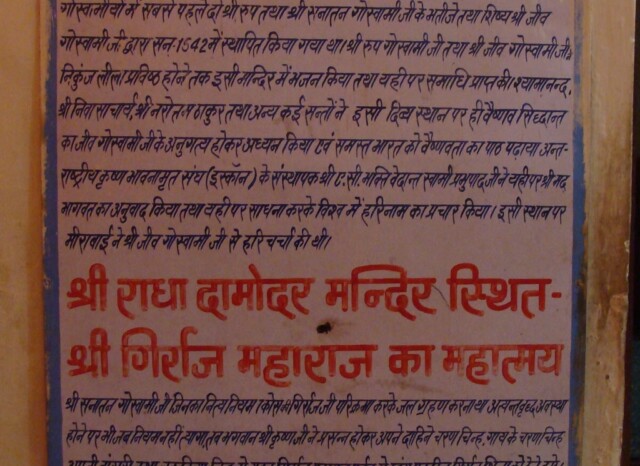 गोस्वामीयों में सबसे पहले दो श्री रुप तथा श्री सनातन गोस्वामी जी के भतीजे तथा शिष्य श्री जीव
गोस्वामी जी द्वारा सन-1542 में स्थापित किया गया था। श्री रुप गोस्वामी जी तथा श्री जीव गोस्वामी जी ने
निकुंज लीला प्रविष्ठ होने तक इसी मन्दिर में भजन किया तथा यही पर समाधि प्राप्त की। श्यामानन्द,
श्री निवासाचार्य, श्री नरोत्तम ठाकुर तथा अन्य कई सन्तों ने इसी दिव्य स्थान पर ही वैष्णव सिद्धान्त
का जीव गोस्वामी जी के अनुगत्य होकर अध्यन किया एवं समस्त भारत को वैष्णवता का पाठ पढ़ाया। अन्त-
राष्ट्रीय कृष्ण भावनामृत संघ (इस्कॉन) के संस्थापक श्री ए.सी. भक्ति वेदान्त स्वामी प्रभुपाद जी ने यही पर श्री मद
भागवत का अनुवाद किया तथा यही पर साधना करके विश्व में हरिनाम का प्रचार किया। इसी स्थान पर
मीराबाई ने श्री जीव गोस्वामी जी से हरि चर्चा की थी।
श्री राधा दामोदर मन्दिर स्थित-
श्री गिर्राज महाराज का महात्मय
श्री सनातन गोस्वामी जी जिनका नित्य नियम था गिर्राज जी परिक्रमा करके जल ग्रहण करना था अत्यन्त वृद्ध अवस्था
होने पर भी जब नियम नहीं त्यागा तब भगवान श्री कृष्ण जी ने प्रसन्न होकर अपने दाहिने चरण चिन्ह, गाय के चरण चिन्ह